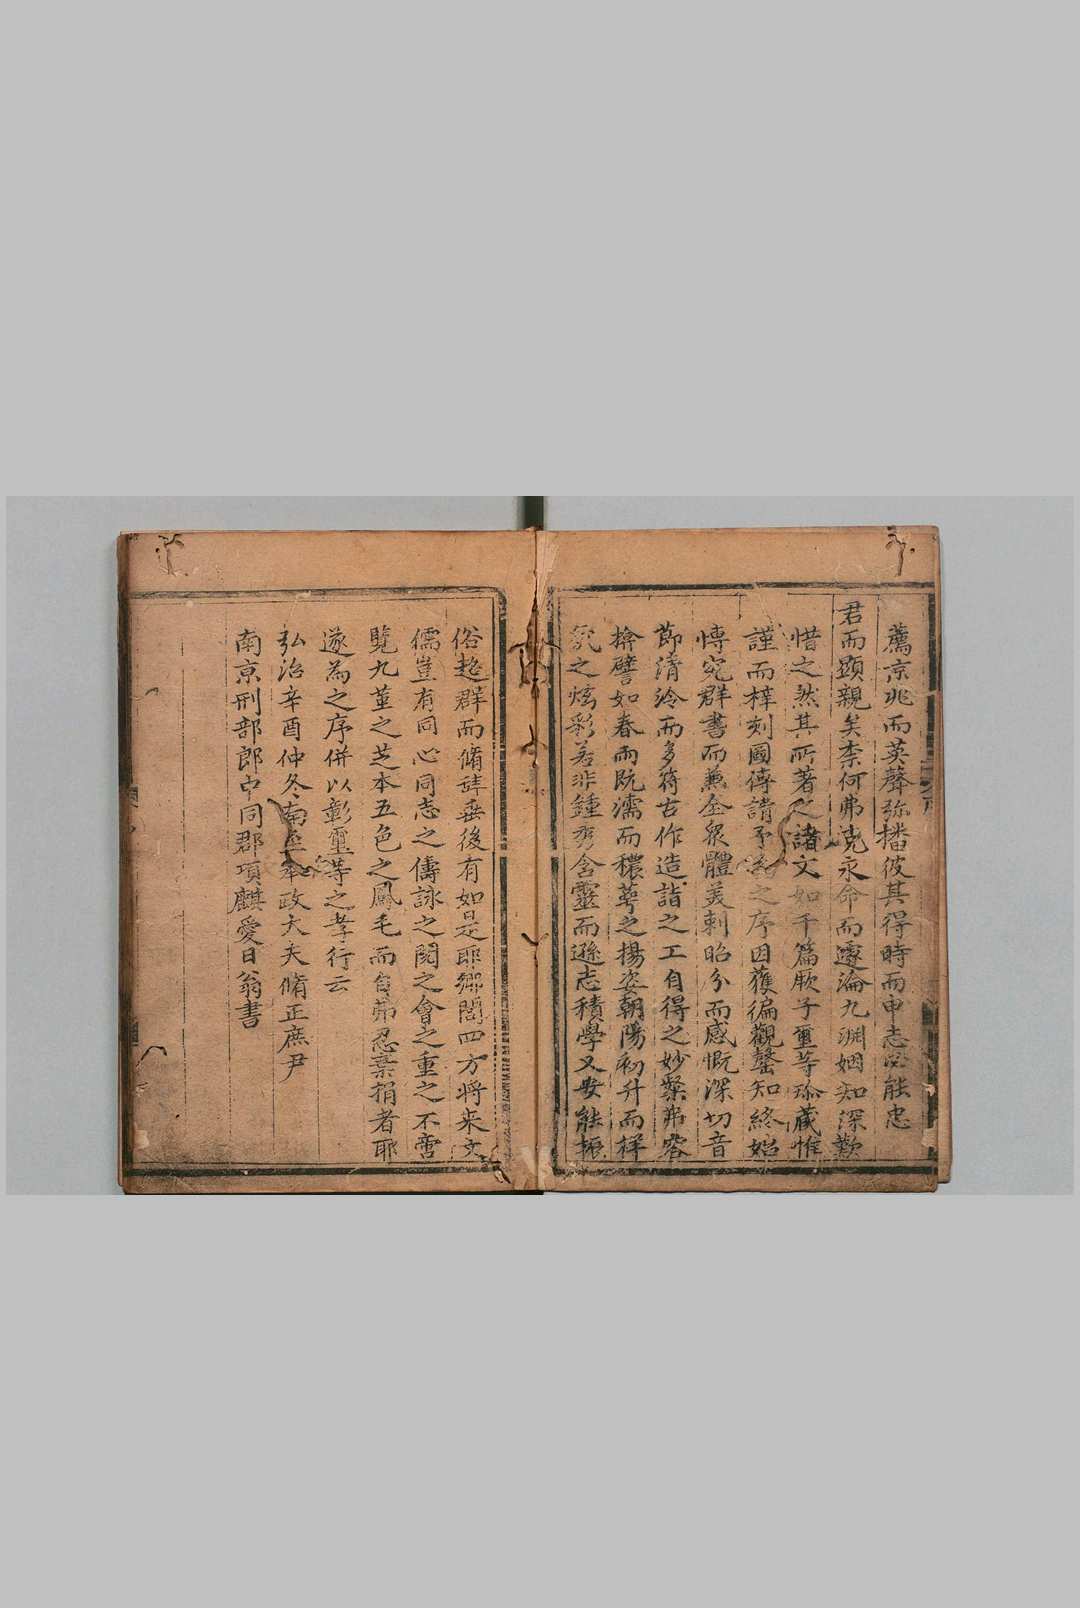 薦京兆而英聲弥播彼其得時而申志必能忠
君而顕親矣柰何弗克永命而遽淪九淵姻知深歎
惜之然其所著之諸文如千篇厥子璽等珎蔵惟
謹而梓刻圖傳請予為之序因獲徧觀罄知終始
愽究群書而兼全衆體美刺昭分而感慨深切音
莭清泠而多符古作造詣之工自得之妙槩弗容
揜譬如春雨既濡而穠萼之揚姿朝陽初升而祥
之炫彩若非鍾秀含靈而遜志積學又安能振
俗超群而脩辞垂後有如是耶鄉閭四方将来文
儒豈有同心同志之儔詠之閱之會之重之不啻
覽九莖之芝本五色之鳳毛而自弗忍棄捐者耶
遂為之序併以彰璽等之孝行云
弘治辛酉仲冬南至奉政大夫脩正庶尹
南京刑部郎中同郡項麒愛日翁書